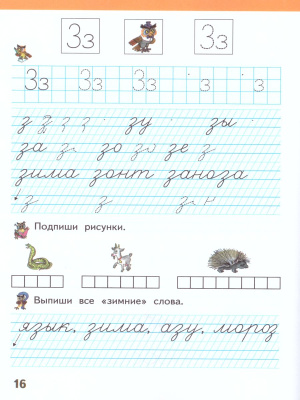 Зз Зз
Зз Зз Зз з з
з з з з зу зы
за з зо зо зе з
зима зонт заноза
з з з
Подпиши рисунки.
Выпиши все «зимние» слова.
язык, зима, азу, мороз
16